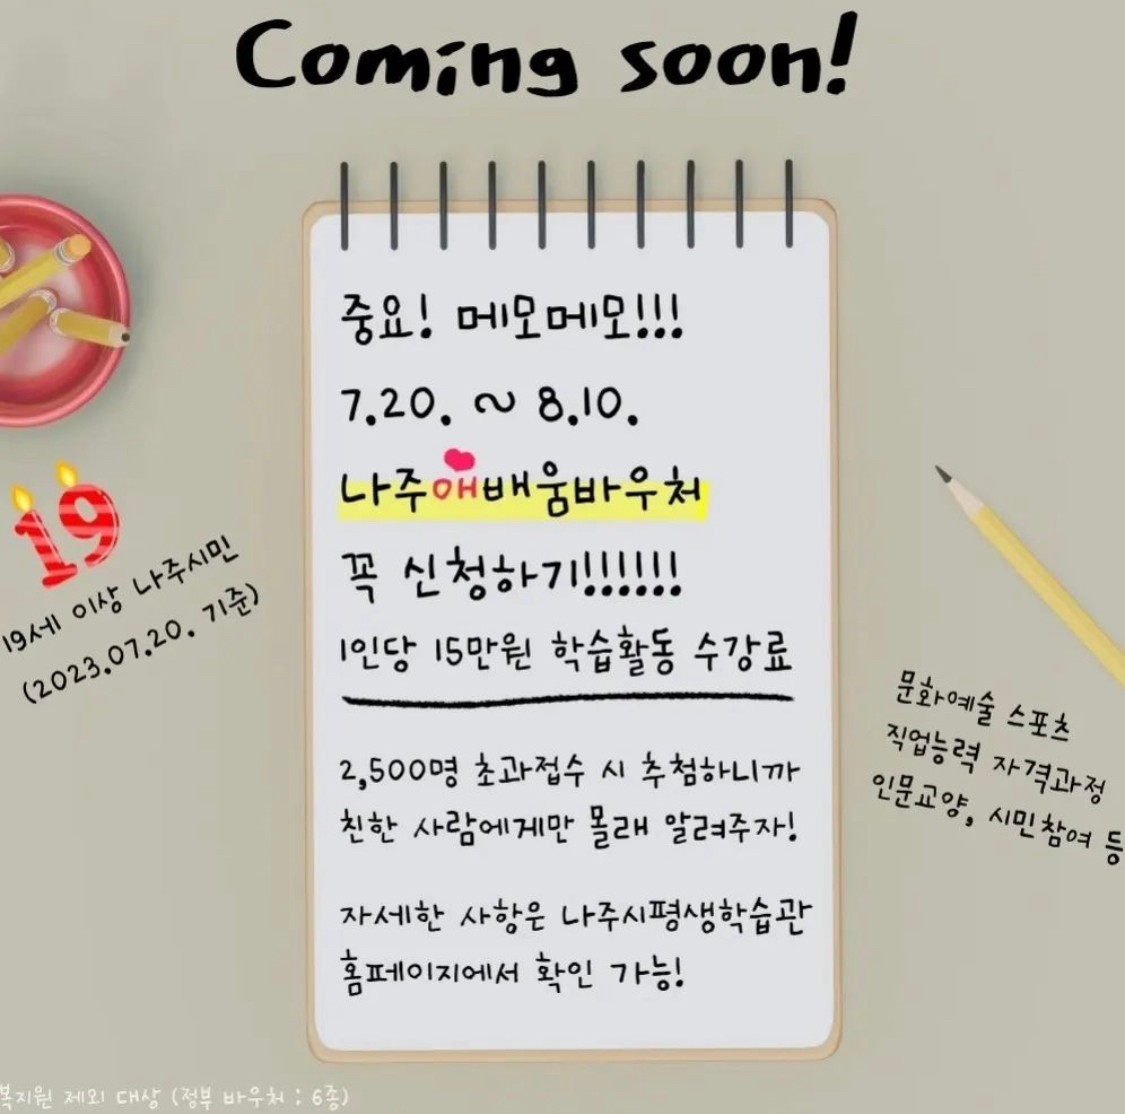 Coming soon!
중요! 메모메모!!!
7.20. ~ 8.10.
나주애배움바우처
꼭 신청하기!!!!!!
1인당 15만원 학습활동 수강료
2,500명 초과접수 시 추첨하니까
친한 사람에게만 몰래 알려주자!
자세한 사항은 나주시평생학습관
홈페이지에서 확인 가능!
19
19세 이상 나주시민
(2023.07.20. 기준)
문화예술 스포츠
직업능력 자격과정
인문교양, 시민참여 등
제외 대상 (정부 바우처 : 6종)